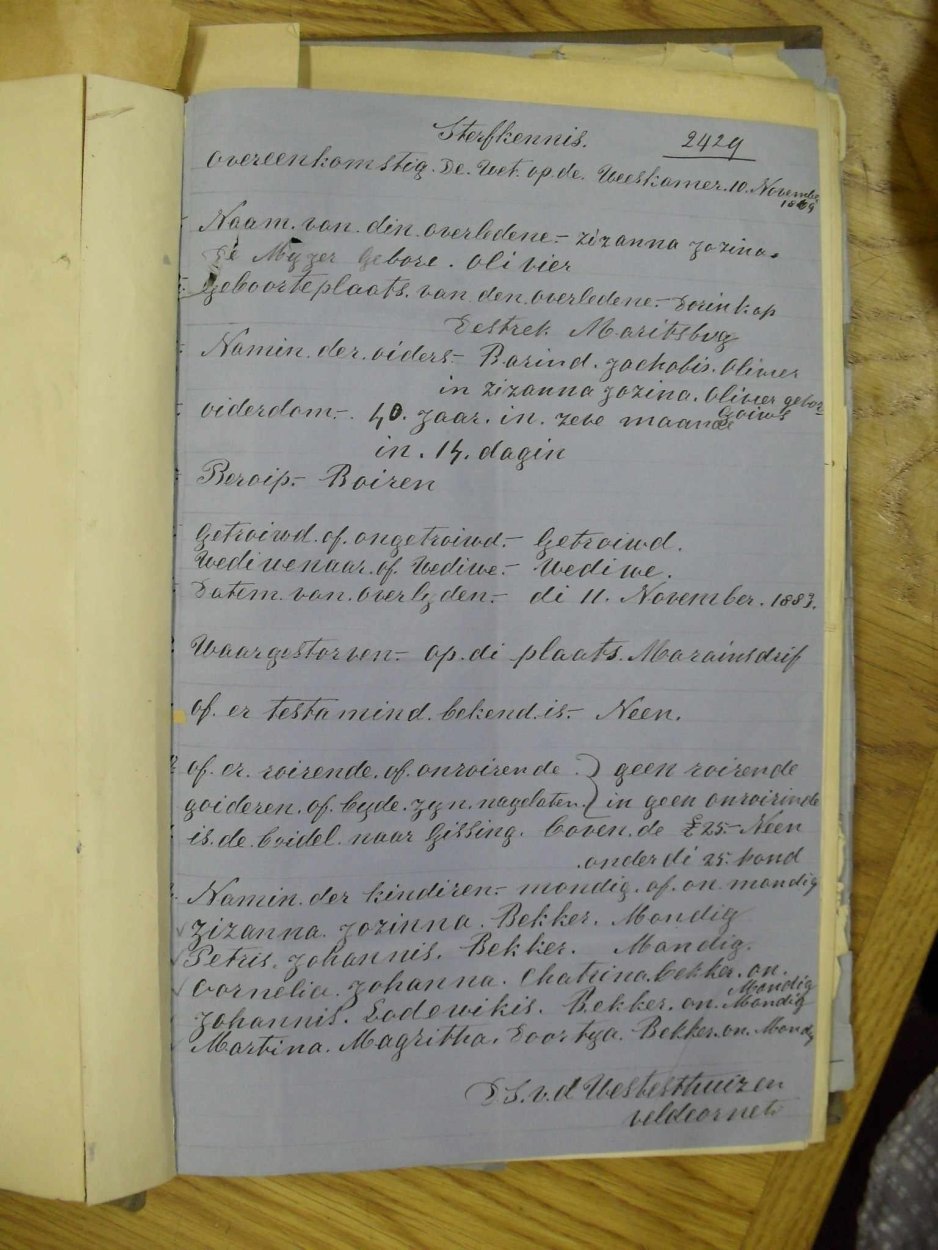 Sterfkennis. 2429
overeenkomstig. De. Wet. op. de. Weeskamer. 10. November
1869
Naam. van. din. overledene.- zizanna zozina.
De Myzer Gebore. Olivier
Geboorteplaats. van. den. overledene.- Dorinkop
Destrek Maritsbug
Namin. der. oiders.- Barind. Jachobis. Olivier
in zizanna zozina. Olivier gebor
oiderdom-. 40. Jaar. in. zeve maande
in. 14. dagin
Beroip.- Boiren
Getroiwd. of. ongetroiwd.- Getroiwd.
Wediwenaar. of Wediwe.- Wediwe.
Datim. van. overlyden.- di 11. November. 1883.
Waargestorven.- op. di plaats. Marainsdrif
of. er testamind. bekend. is.- Neen.
of. er. roirende. of. onroirende. } geen roirende
goideren. of. byde. zyn. nagelaten. } in geen onroirinde
is. de. boidel. naar Gissing. boven. de £25.- Neen
.onder di 25. pond
Namin. der kindiren.- mondig. of. on. mondig
zizanna. zozinna. Bekker. Mondig
Petris. Johannis. Bekker. Mondig.
Cornelia. Johanna. Chatrina. bekker. on.
Mondig
Johannis. Lodewikis. Bekker. on. Mondig
Martina. Magritha. Doortya. Bekker. on. Mondg
v. d Westesthuizen
veldcornet